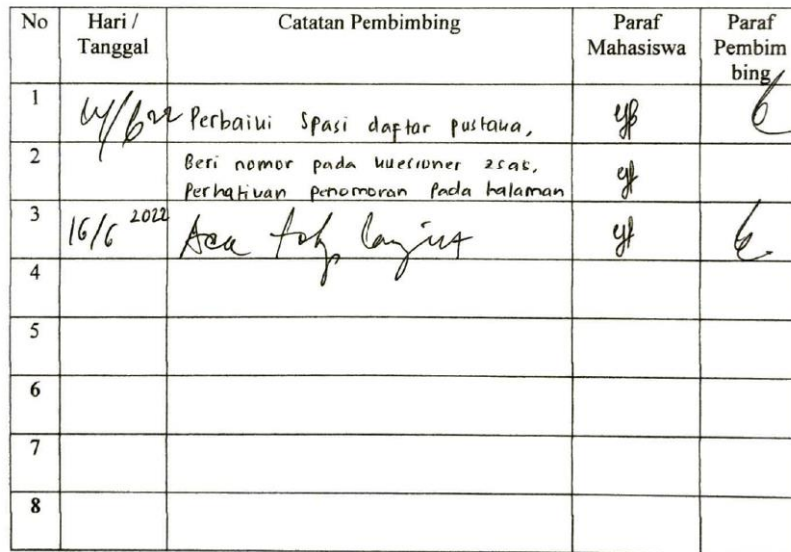 No Hari / Tanggal Catatan Pembimbing Paraf Mahasiswa Paraf Pembim bing
1 Perbaiki Spasi daftar pustaka,
2 Beri nomor pada kuesioner zsas,
Perhatikan penomoran Pada halaman
3 16/6 2022 Acc
4
5
6
7
8